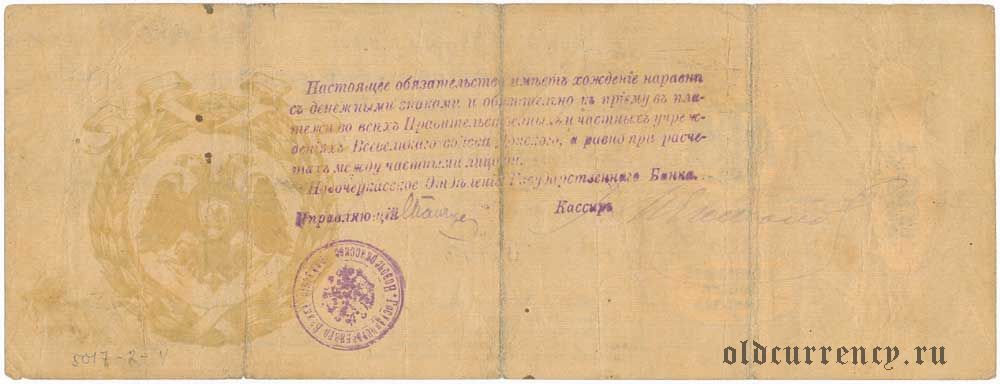 Настоящее обязательство имѣетъ хожденіе наравнѣ
съ денежными знаками и обязательно къ пріему въ пла-
тежи во всѣхъ Правительственныхъ и частныхъ учреж-
деніяхъ Всевеликаго войска Донского, а равно при расче-
тахъ между частными лицами.
Новочеркасское Отдѣленіе Государственнаго Банка.
Управляющій Кассиръ
Государственнаго Банка Новочеркасское
5017-2-V
oldcurrency.ru